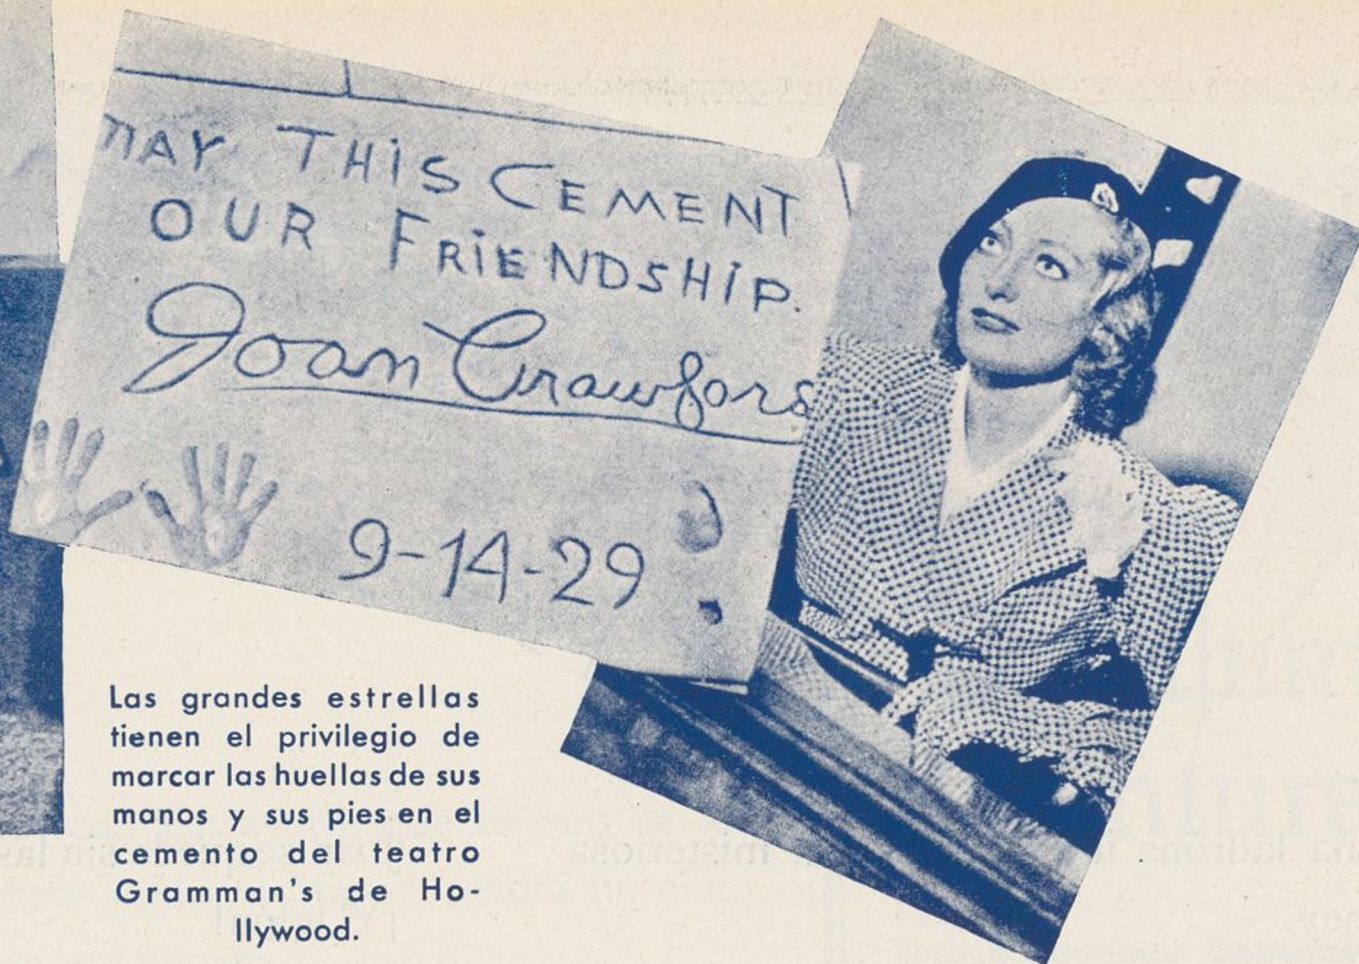 MAY THIS CEMENT
OUR FRIENDSHIP.
Joan Crawford
9-14-29
Las grandes estrellas
tienen el privilegio de
marcar las huellas de sus
manos y sus pies en el
cemento del teatro
Gramman's de Ho-
llywood.